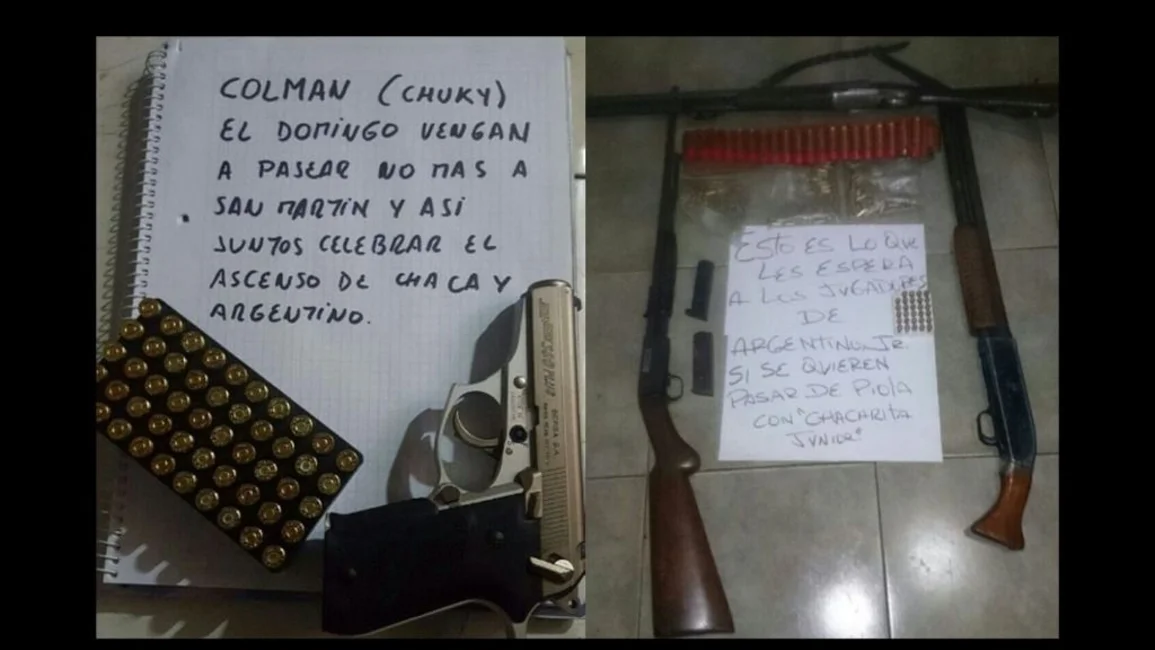 COLMAN (CHUKY)
EL DOMINGO VENGAN
A PASEAR NO MAS A
SAN MARTIN Y ASI
JUNTOS CELEBRAR EL
ASCENSO DE CHACA Y
ARGENTINO.
BERSA S.A.
ESTO ES LO QUE
LES ESPERA
A LOS JUGADORES
DE
ARGENTINO JR.
SI SE QUIEREN
PASAR DE PIOLA
CON "CHACARITA
JUNIOR"